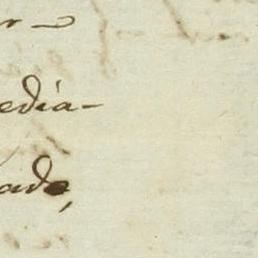 r
edia-
ado,